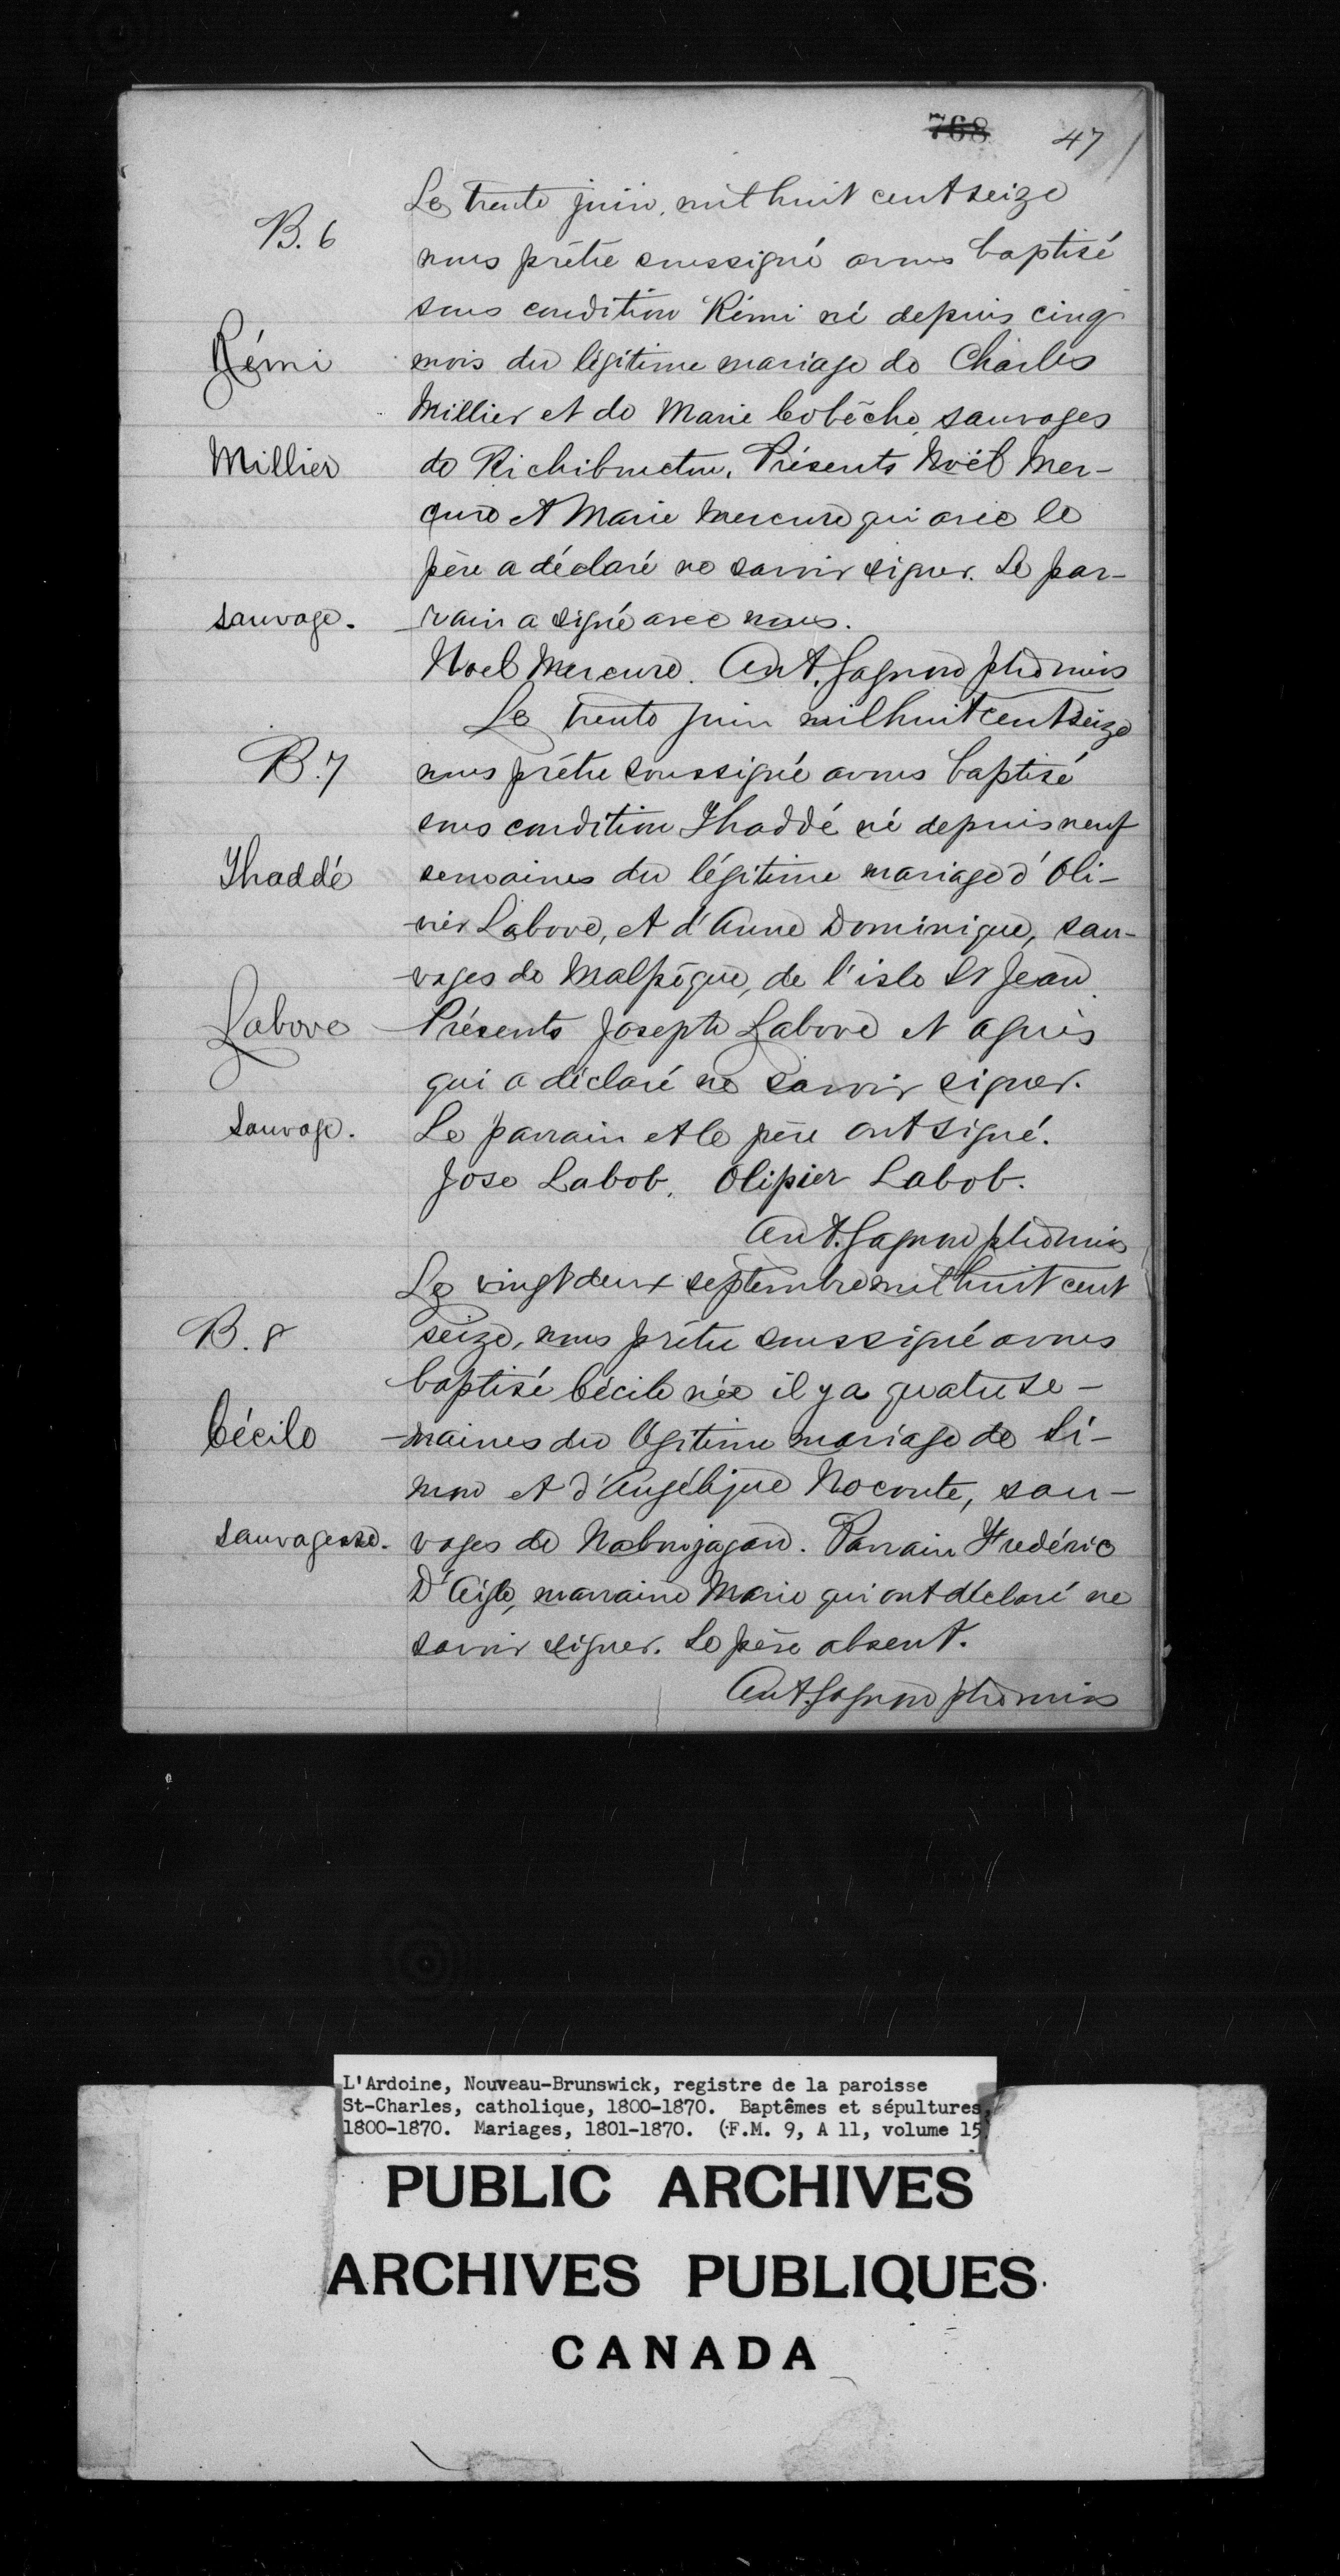 768 47
Le trente juin, mil huit cent seize
B. 6
nous prêtre soussigné avons baptisé
sous condition Rémi né depuis cinq
Rémi
mois du légitime mariage de Charles
Millier et de Marie Cobêche, sauvages
Millier
de Richibouctou. Présents Noël Mer-
cure et Marie Mercure qui avec le
père a déclaré ne savoir signer. Le par-
sauvage.
rain a signé avec nous.
Noel Mercure. Ant. Gagnon ptre miss
Le trente juin mil huit cent seize
B. 7
nous prêtre soussigné avons baptisé
sous condition Thaddé né depuis neuf
Thaddé
semaines du légitime mariage d'Oli-
vier Labove, et d'Anne Dominique, sau-
vages de Malpègue, de l'isle St Jean.
Labove
Présents Joseph Labove et Agnès
qui a déclaré ne savoir signer.
Sauvage.
Le parrain et le père ont signé.
Jose Labob. Olipier Labob.
Ant. Gagnon ptre miss
Le vingt deux septembre mil huit cent
B. 8
seize, nous prêtre soussigné avons
baptisé Cécile née il y a quatre se-
Cécile
maines du légitime mariage de Si-
mon et d'Angélique Nocoute, sau-
Sauvagesse.
vages de . Parrain Frédéric
D'Aigle, marraine Marie qui ont déclaré ne
savoir signer. Le père absent.
Ant. Gagnon ptre miss
L'Ardoine, Nouveau-Brunswick, registre de la paroisse
St-Charles, catholique, 1800-1870. Baptêmes et sépultures,
1800-1870. Mariages, 1801-1870. (F.M. 9, A 11, volume 15
PUBLIC ARCHIVES
ARCHIVES PUBLIQUES
CANADA